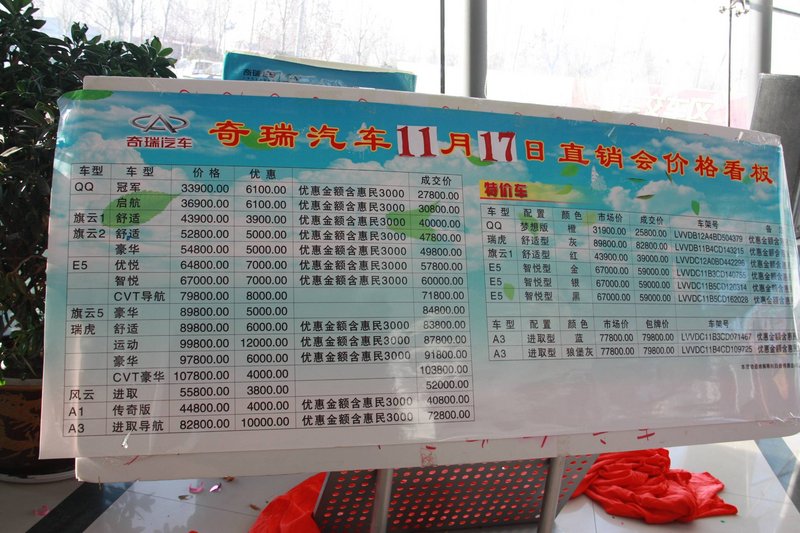 奇瑞
奇瑞汽车
奇瑞汽车11月17日直销会价格看板
车型 车型 价格 优惠 成交价
QQ 冠军 33900.00 6100.00 优惠金额含惠民3000 27800.00
启航 36900.00 6100.00 优惠金额含惠民3000 30800.00
旗云1 舒适 43900.00 3900.00 优惠金额含惠民3000 40000.00
旗云2 舒适 52800.00 5000.00 优惠金额含惠民3000 47800.00
豪华 54800.00 5000.00 优惠金额含惠民3000 49800.00
E5 优悦 64800.00 7000.00 优惠金额含惠民3000 57800.00
智悦 67000.00 7000.00 优惠金额含惠民3000 60000.00
CVT导航 79800.00 8000.00 71800.00
旗云5 豪华 89800.00 5000.00 84800.00
瑞虎 舒适 89800.00 6000.00 优惠金额含惠民3000 83800.00
运动 99800.00 12000.00 优惠金额含惠民3000 87800.00
豪华 97800.00 6000.00 优惠金额含惠民3000 91800.00
CVT豪华 107800.00 4000.00 103800.00
风云 进取 55800.00 3800.00 52000.00
A1 传奇版 44800.00 4000.00 优惠金额含惠民3000 40800.00
A3 进取导航 82800.00 10000.00 优惠金额含惠民3000 72800.00
特价车
车型 配置 颜色 市场价 成交价 车架号 备
QQ 梦想版 橙 31900.00 25800.00 LVVDB12A4BD504379 优惠金额含
瑞虎 舒适型 灰 89800.00 82800.00 LVVDB11B4CD143215 优惠金额含
旗云1 舒适型 红 43900.00 39000.00 LVVDC12A0BD442296 优惠金额含
E5 智悦型 金 67000.00 59000.00 LVVDC11B3CD140755 优惠金额含惠
E5 智悦型 银 67000.00 59000.00 LVVDC11B5CD120314 优惠金额含惠
E5 智悦型 黑 67000.00 59000.00 LVVDC11B5CD162028 优惠金额含惠
车型 配置 颜色 市场价 包牌价 车架号
A3 进取型 蓝 77800.00 79800.00 LVVDC11B3CD1071467 优惠金额
A3 进取型 狼堡灰 77800.00 79800.00 LVVDC11B4CD109725 优惠金额